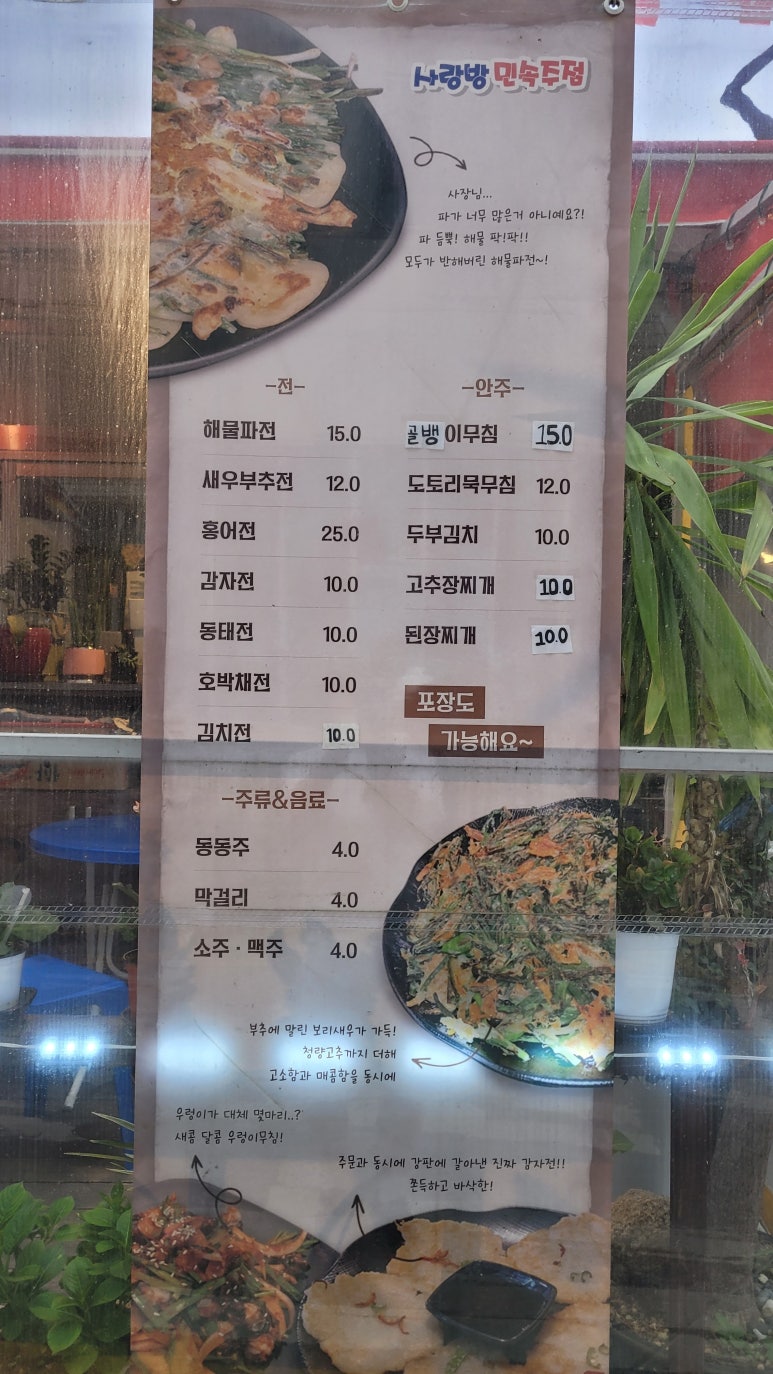 사랑방 민속주점
사장님...
파가 너무 많은거 아니예요?!
파 듬뿍! 해물 팍!팍!!
모두가 반해버린 해물파전~!
-전-
해물파전 15.0
새우부추전 12.0
홍어전 25.0
감자전 10.0
동태전 10.0
호박채전 10.0
김치전 10.0
-안주-
골뱅이무침 15.0
도토리묵무침 12.0
두부김치 10.0
고추장찌개 10.0
된장찌개 10.0
포장도
가능해요~
-주류&음료-
동동주 4.0
막걸리 4.0
소주·맥주 4.0
부추에 말린 보리새우가 가득!
청량고추까지 더해
고소함과 매콤함을 동시에
우렁이가 대체 몇마리..?
새콤 달콤 우렁이무침!
주문과 동시에 강판에 갈아낸 진짜 감자전!!
쫀득하고 바삭한!